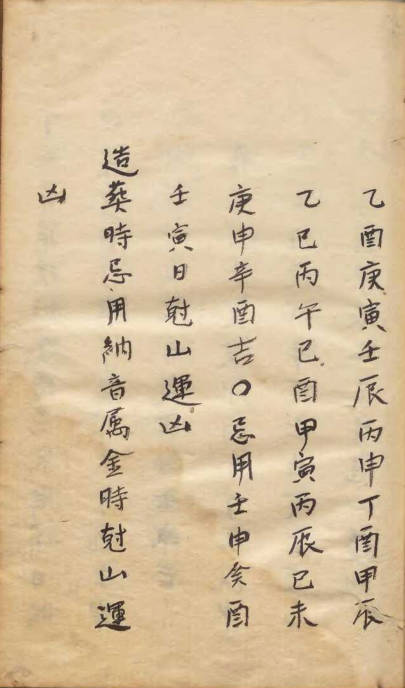 乙酉庚寅壬辰丙申丁酉甲辰
乙巳丙午己酉甲寅丙辰己未
庚申辛酉吉〇忌用壬申癸酉
壬寅日尅山運凶
造葬時忌用納音属金時尅山運
凶